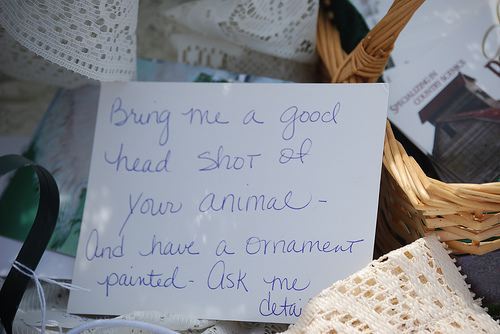 Bring me a good
head shot of
your animal -
And have a ornament
painted - Ask me
detai
SPECIALIZING IN
COUNTRY SCENES